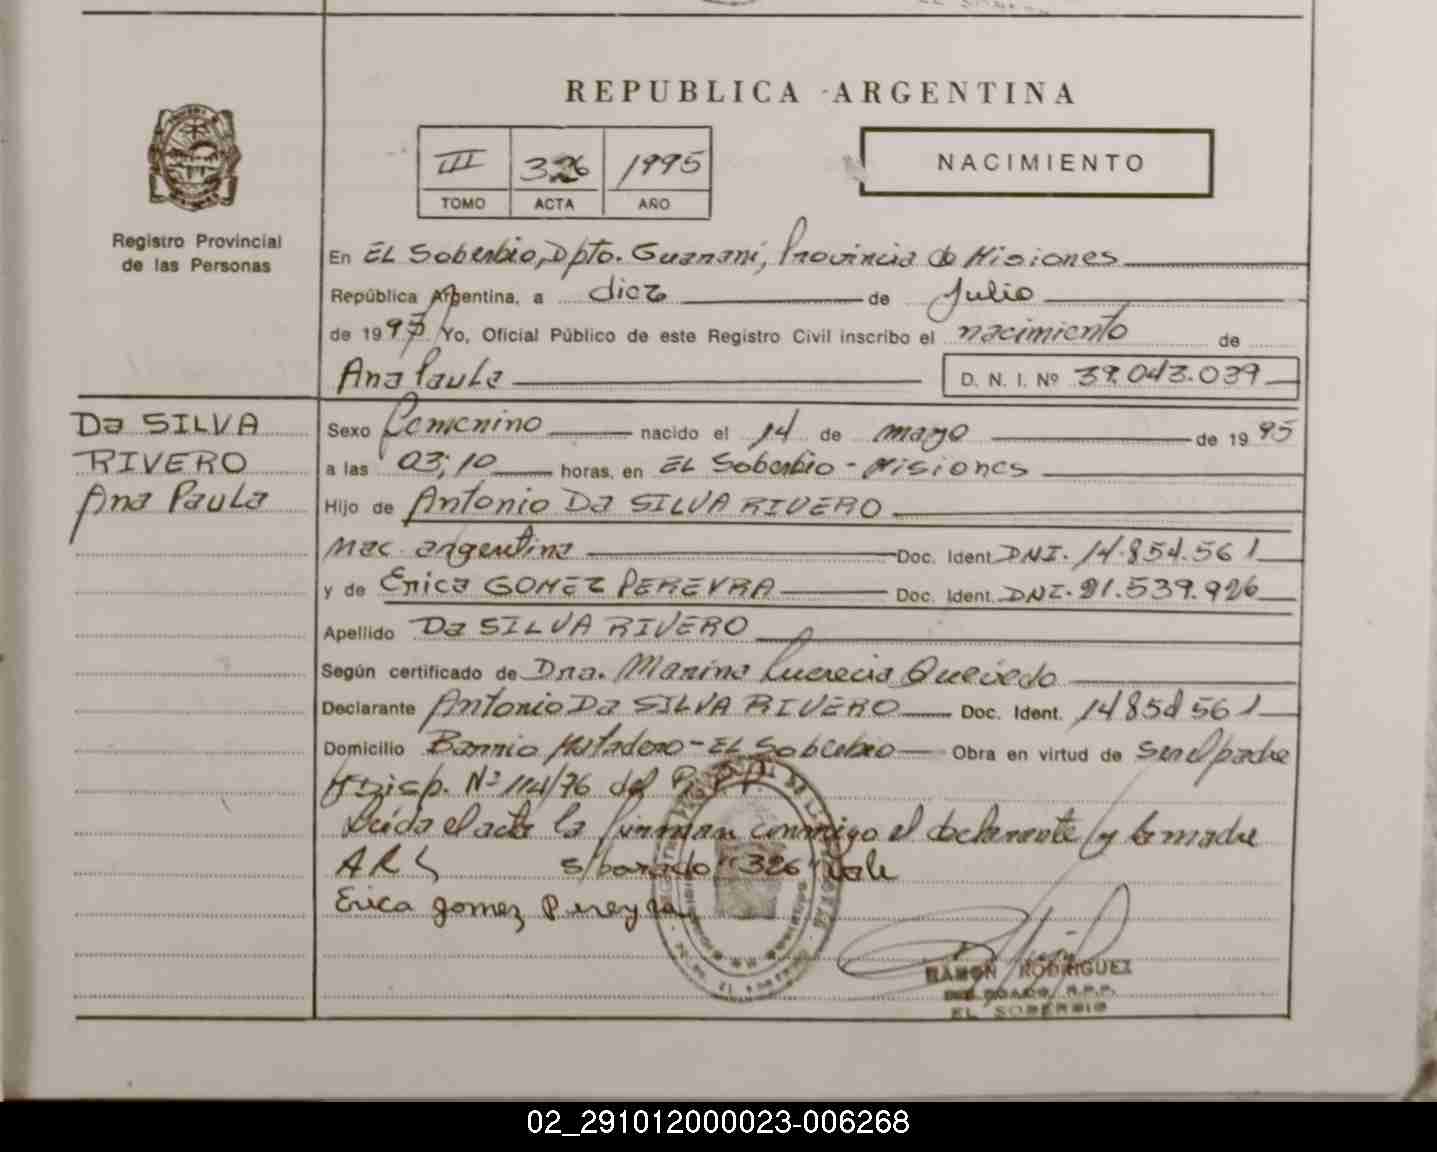 REPUBLICA ARGENTINA
III 326 1995
TOMO ACTA AÑO
NACIMIENTO
Registro Provincial
de las Personas
En EL Soberbio, Dpto. Guarani, Provincia de Misiones
República Argentina, a diez de Julio
de 1995 Yo, Oficial Público de este Registro Civil inscribo el nacimiento de
Ana Paula D. N. I. Nº 39.043.039
Da SILVA
RIVERO
Ana Paula
Sexo Femenino nacido el 14 de mayo de 1995
a las 03;10 horas, en EL Soberbio - Misiones
Hijo de Antonio Da SILVA RIVERO
Nac. argentina Doc. Ident. DNI. 14.854.561
y de Erica GOMEZ PEREYRA Doc. Ident. DNI. 21.539.926
Apellido Da SILVA RIVERO
Según certificado de Dra. Marina Lucrecia Quevedo
Declarante Antonio Da SILVA RIVERO Doc. Ident. 14854561
Domicilio Barrio Matadero - EL Soberbio Obra en virtud de ser el padre
Disp. Nº 114/76 del
Leída el acta la firman conmigo el declarante y la madre
ARS s/borrado "326" Vale
Erica gomez Pereyra
RAMON RODRIGUEZ
R.P.P.
EL SOBERBIO
02_291012000023-006268